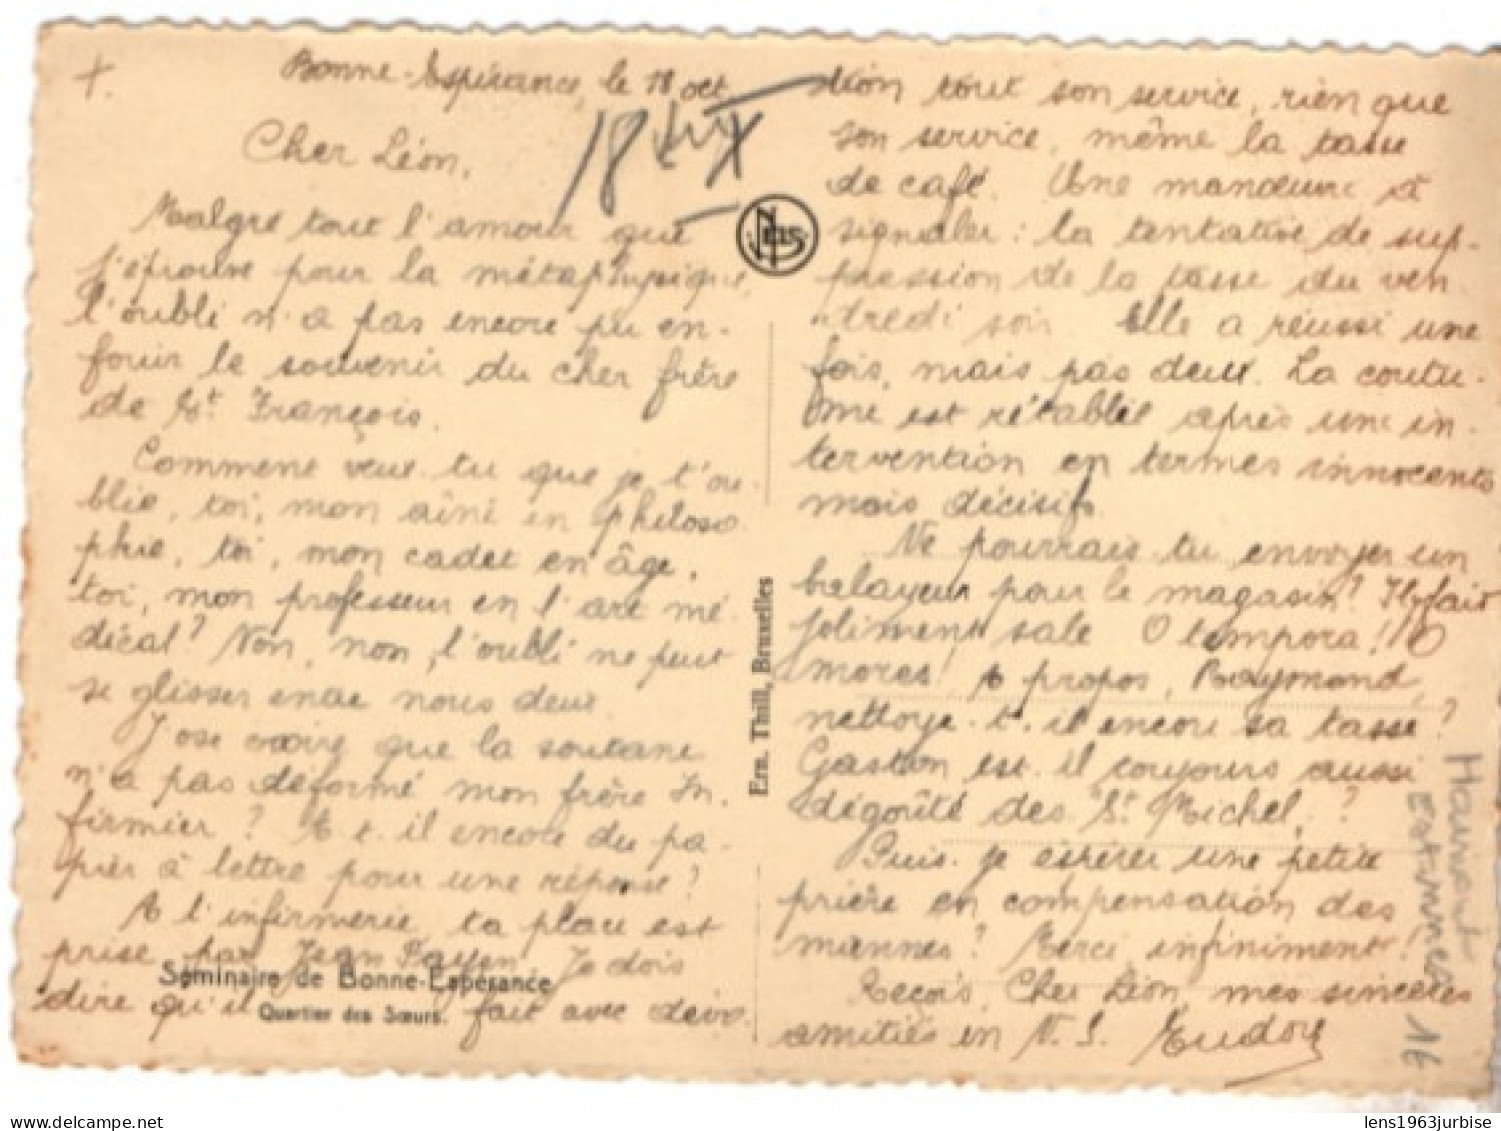 +.
Bonne-Espérance, le 18 oct
18 X
Cher Léon,
Malgré tout l'amour que
j'éprouve pour la métaphysique,
l'oubli n'a pas encore pu en-
fouir le souvenir du cher frère
de St François.
Comment veux-tu que je t'ou-
blie, toi, mon aîné en philoso-
phie, toi, mon cadet en âge,
toi, mon professeur en l'art mé-
dical? Non, non, l'oubli ne peut
se glisser entre nous deux.
J'ose croire que la soutane
n'a pas déformé mon frère In-
firmier? A-t-il encore du pa-
pier à lettre pour une réponse?
A l'infirmerie, ta place est
prise par Jean Payen. Je dois
dire qu'il fait avec dévo-
Séminaire de Bonne-Espérance
Quartier des Sœurs.
Nels
Ern. Thill, Bruxelles
tion tout son service, rien que
son service, même la tasse
de café. Une manœuvre à
signaler: la tentative de sup-
pression de la tasse du ven-
dredi soir. Elle a réussi une
fois, mais pas deux. La coutu-
me est rétablie après une in-
tervention en termes innocents
mais décisifs.
Ne pourrais-tu envoyer un
balayeur pour le magasin? Il fait
joliment sale. O tempora! O
mores! A propos, Raymond,
nettoye-t-il encore sa tasse?
Gaston est-il toujours aussi
dégoûté des St Michel?
Puis-je espérer une petite
prière en compensation des
miennes? Merci infiniment!
Reçois, Cher Léon, mes sincères
amitiés in N. S. Eudore
Hainaut
Estinnes 16
lens1963jurbise
delcampe.net